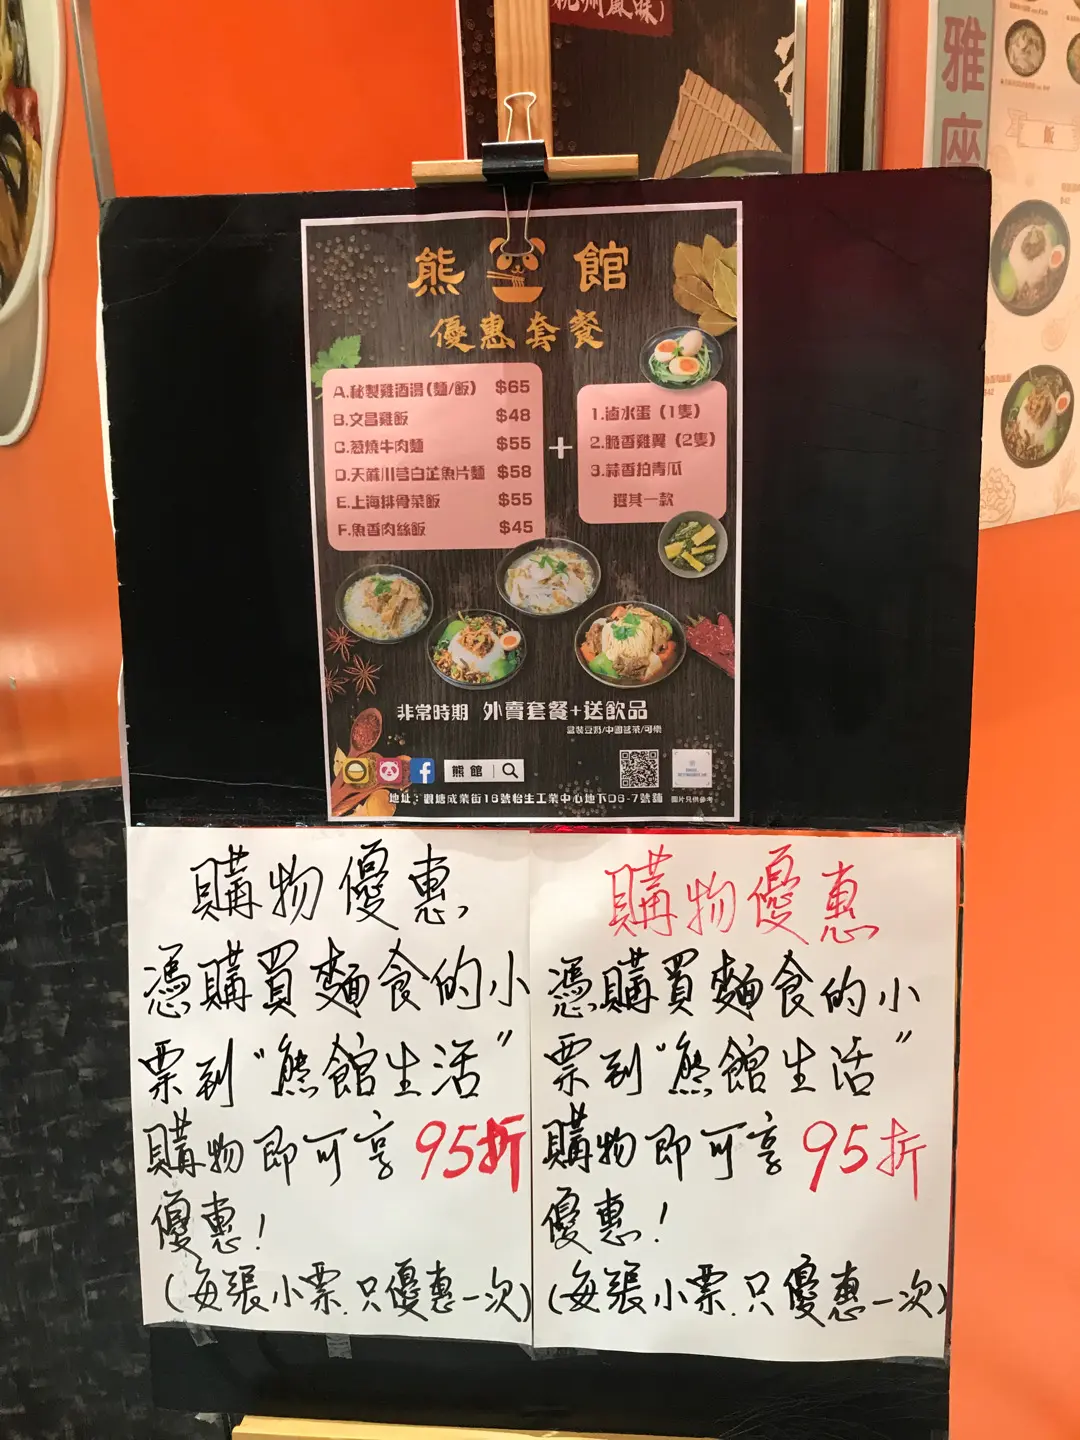 杭州風味)
雅座
飯
熊館
優惠套餐
A.秘製雞酒湯(麵/飯) $65
B.文昌雞飯 $48
C.葱燒牛肉麵 $55
D.天蔴川芎白芷魚片麵 $58
E.上海排骨菜飯 $55
F.魚香肉絲飯 $45
+
1.滷水蛋 (1隻)
2.脆香雞翼 (2隻)
3.蒜香拍青瓜
選其一款
非常時期 外賣套餐+送飲品
盒裝豆奶/中國茗茶/可樂
熊館
地址:觀塘成業街16號怡生工業中心地下D6-7號舖
圖片只供參考
購物優惠,
憑購買麵食的小
票到"熊館生活"
購物即可享95折
優惠!
(每張小票,只優惠一次)
購物優惠
憑購買麵食的小
票到"熊館生活"
購物即可享95折
優惠!
(每張小票,只優惠一次)